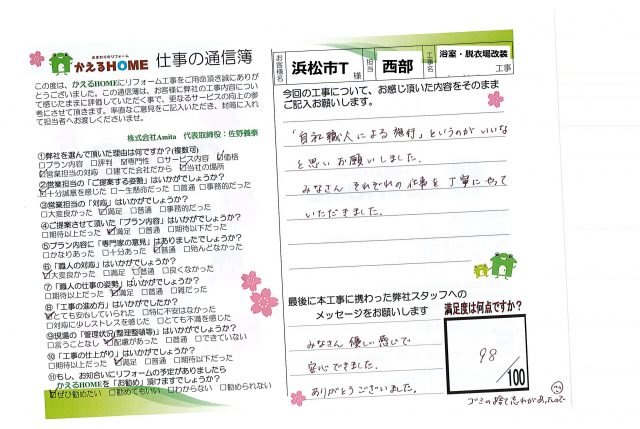 水まわりのリフォーム
かえるHOME 仕事の通信簿
この度は、かえるHOMEにリフォーム工事をご用命頂き誠にありが
とうございました。この通信簿は、お客様に弊社の工事内容につい
て感じたままに評価していただく事で、更なるサービスの向上の参
考にさせて頂きます。率直なご意見をご記入いただき、封筒に入れ
て担当者へお渡しくださいませ。
株式会社Amita 代表取締役：佐野雅泰
①弊社を選んで頂いた理由は何ですか?(複数可)
□プラン内容 □評判 ☑専門性 □サービス内容 ☑価格
☑営業担当の対応 □建てた会社だから ☑当社の場所
②営業担当の「ご提案する姿勢」はいかがでしょうか?
☑十分誠意を感じた □一生懸命だった □普通 □事務的だった
③営業担当の「対応」はいかがでしょうか?
□大変良かった ☑満足 □普通 □事務的だった
④ご提案させて頂いた「プラン内容」はいかがでしょうか?
□期待以上だった ☑満足 □普通 □期待以下だった
⑤プラン内容に「専門家の意見」はありましたでしょうか?
□かなりあった □十分あった ☑普通 □殆んどなかった
⑥「職人の対応」はいかがでしょうか?
☑大変良かった □満足 □普通 □良くなかった
⑦「職人の仕事の姿勢」はいかがでしょうか?
□期待以上だった ☑満足 □普通 □雑だった
⑧「工事の進め方」はいかがでしたか?
☑とても安心していられた □特に不安はなかった
□対応に少しストレスを感じた □とても不満を感じた
⑨現場の「管理状況(整理整頓等)」はいかがでしょうか?
□言うことなし ☑配慮があった □普通 □できていない
⑩「工事の仕上がり」はいかがでしょうか?
□期待以上だった ☑満足 □普通 □期待以下だった
⑪もし、お知合いにリフォームの予定がありましたら
かえるHOMEを「お勧め」頂けますでしょうか?
☑ぜひ勧めたい □勧めてもいい □わからない □勧められない
お客様名 浜松市T 様 担当 西部 工事名 浴室・脱衣場改装 工事
今回の工事について、お感じ頂いた内容をそのまま
ご記入お願いします。
「自社職人による施行」というのがいいな
と思いお願いしました.
みなさん それぞれの仕事を丁寧にやって
いただきました.
最後に本工事に携わった弊社スタッフへの
メッセージをお願いします
みなさん 優しい感じで
安心できました.
ありがとうございました.
満足度は何点ですか?
98
/100
ゴミの捨て忘れがあったので